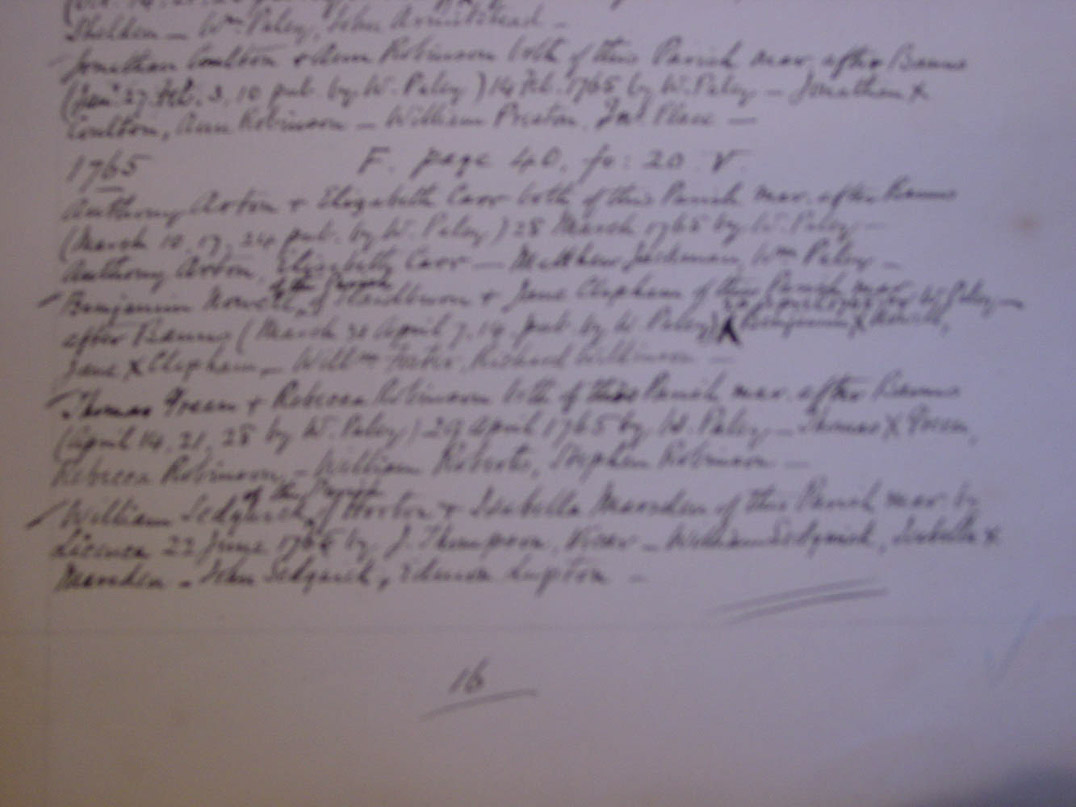 Sheldon – Wm Paley, John Armitstead –
Jonathan Coulton & Ann Robinson both of this Parish mar. after Banns
(Jan. 27. Feb. 3, 10 pub. by W. Paley) 14 Feb. 1765 by W. Paley – Jonathan X
Coulton, Ann Robinson – William Preston,
1765 F. page 40. fo: 20 V.
Anthony Arton & Elizabeth Carr both of this Parish mar. after Banns
(March 10, 17, 24 pub. by W. Paley) 28 March 1765 by W. Paley –
Anthony Arton, Elizabeth Carr – Matthew Jackman, Wm Paley –
Benjamin Nowell, of the Parish of & Jane Clapham of this Parish mar.
after Banns (March 31 April 7, 14 pub. by W. Paley) by W. Paley – Benjamin X Nowell,
Jane X Clapham – Willm Foster, Richard Wilkinson –
Thomas Green & Rebecca Robinson both of this Parish mar. after Banns
(April 14, 21, 28 by W. Paley) 29 April 1765 by W. Paley – Thomas X Green,
Rebecca Robinson, – William Roberts, Stephen Robinson –
William Sedgwick, of the Parish of Horton & Isabella Marsden of this Parish mar. by
Licence 22 June 1765 by J. Thompson, Vicar – William Sedgwick, Isabella X
Marsden – John Sedgwick, Edmon Lupton –
16